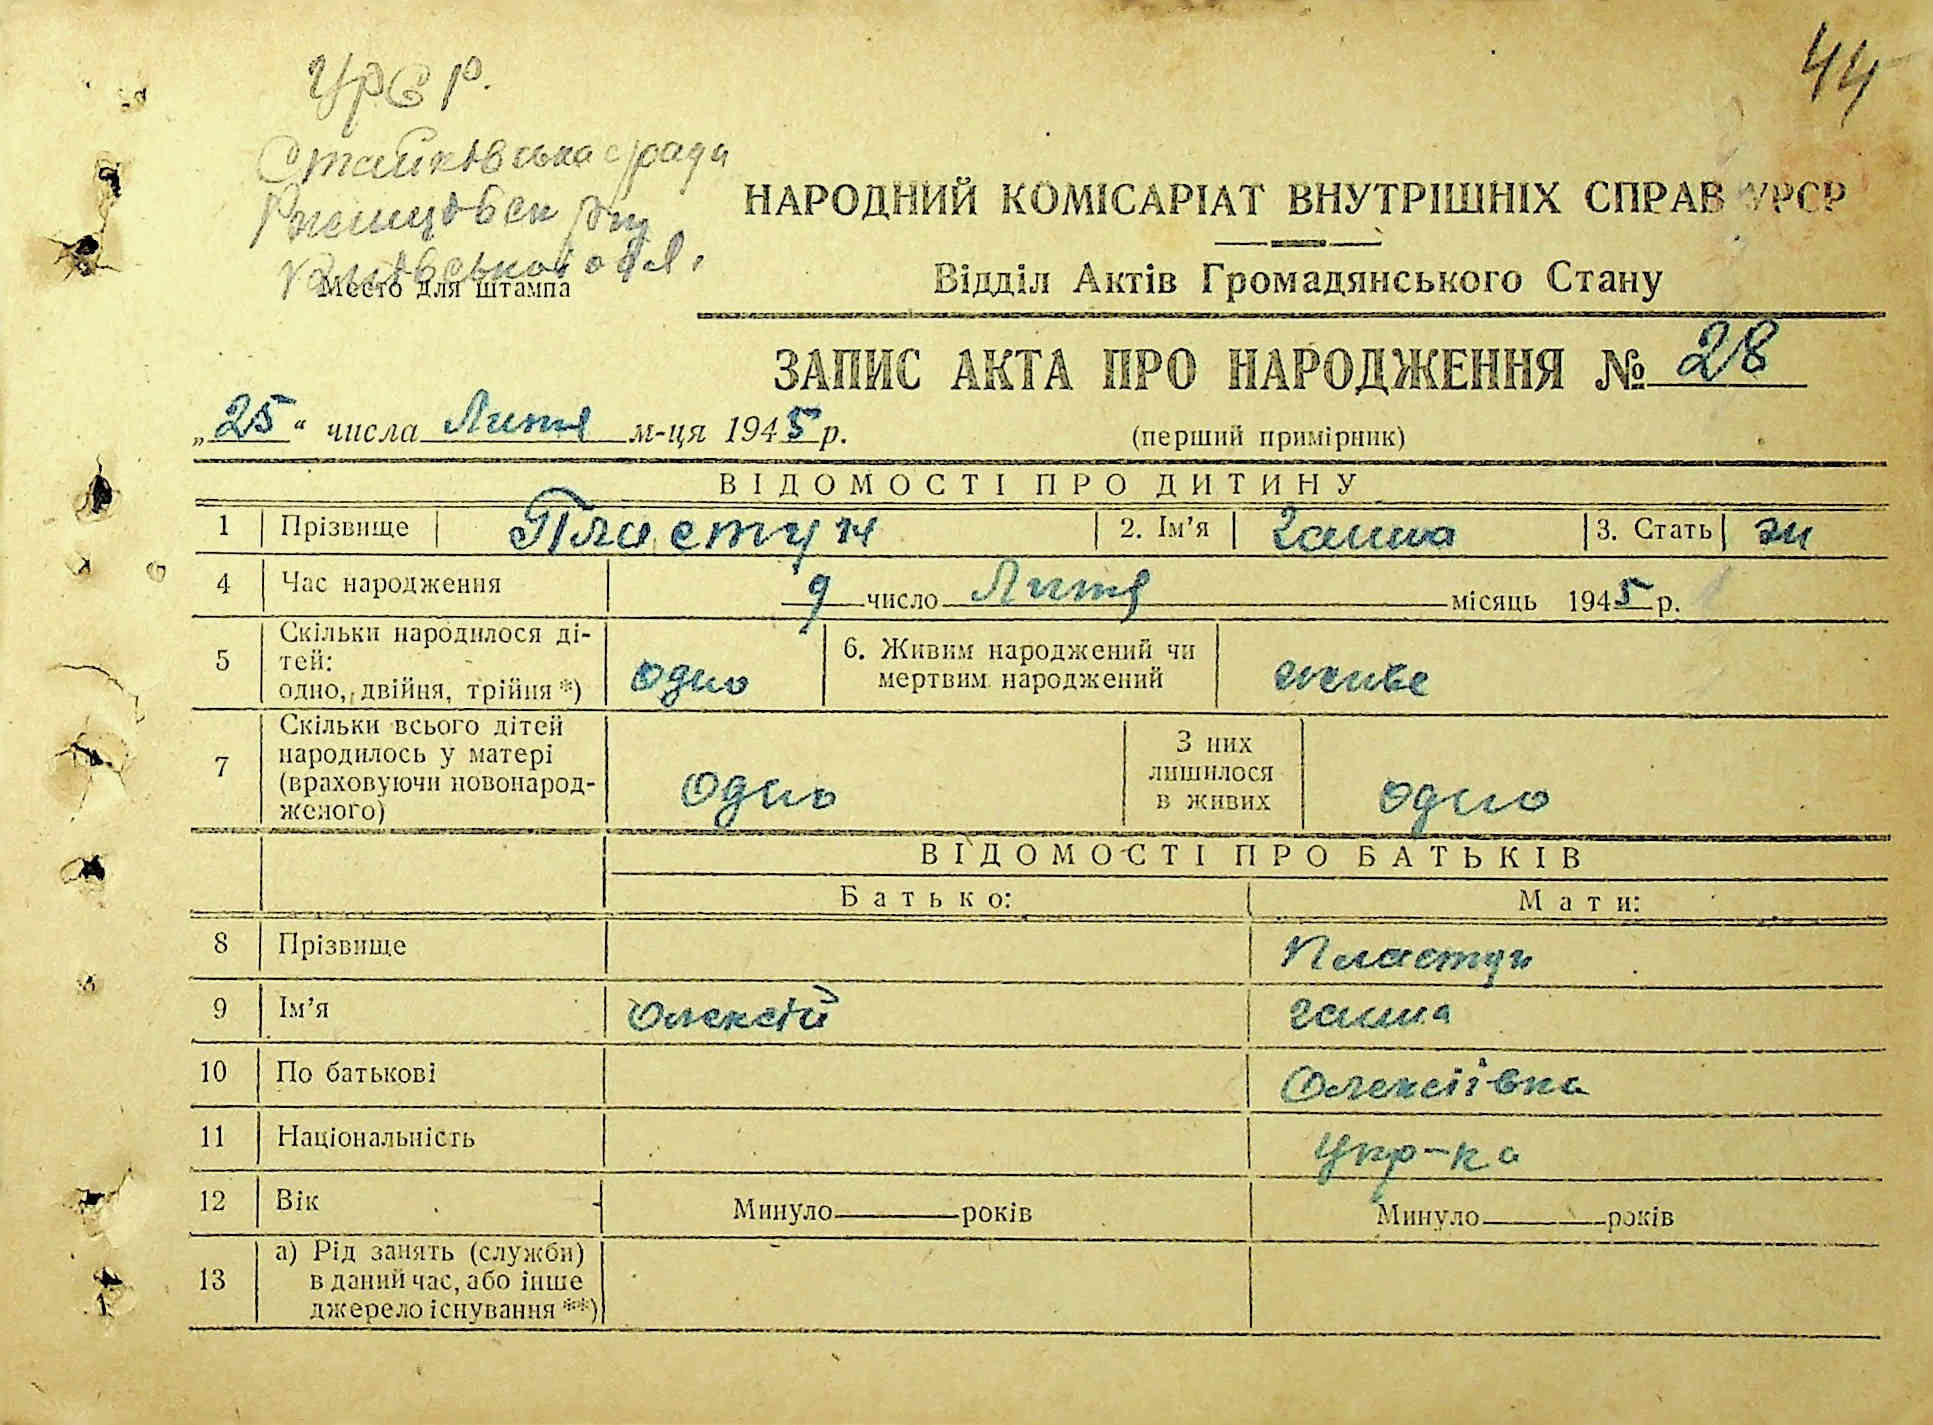 44
УРСР.
Стайківська с рада
Ржищівськ р-ну
Київської обл.
Место для штампа
НАРОДНИЙ КОМІСАРІАТ ВНУТРІШНІХ СПРАВ УРСР
Відділ Актів Громадянського Стану
ЗАПИС АКТА ПРО НАРОДЖЕННЯ № 28
„25“ числа Лютя м-ця 1945 р.
(перший примірник)
ВІДОМОСТІ ПРО ДИТИНУ
1 Прізвище Пластун 2. Ім’я Ганна 3. Стать жн
4 Час народження 9 число Лютя місяць 1945 р.
5 Скільки народилося ді-
тей:
одно, двійня, трійня *) одно 6. Живим народжений чи
мертвим народжений живе
7 Скільки всього дітей
народилось у матері
(враховуючи новонарод-
женого) одно З них
лишилося
в живих одно
ВІДОМОСТІ ПРО БАТЬКІВ
Батько: Мати:
8 Прізвище Пластун
9 Ім’я Олексій Ганна
10 По батькові Олексіївна
11 Національність Укр-ка
12 Вік Минуло років Минуло років
13 а) Рід занять (служби)
в даний час, або інше
джерело існування **)